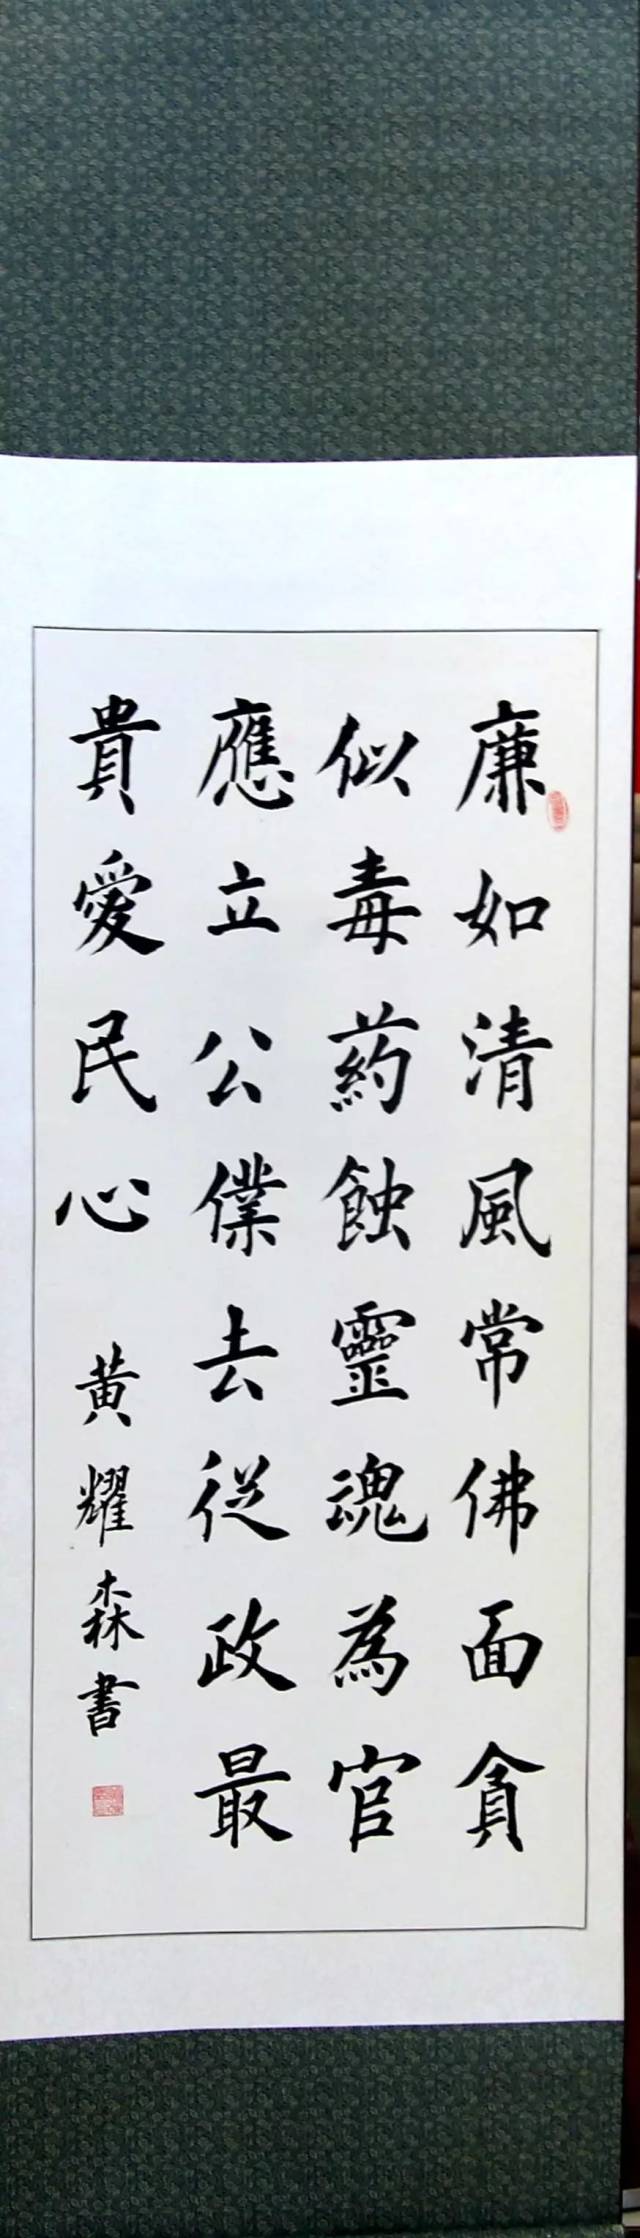 廉如清風常佛面貪
似毒葯蝕靈魂為官
應立公僕去從政最
貴愛民心
黄耀森書